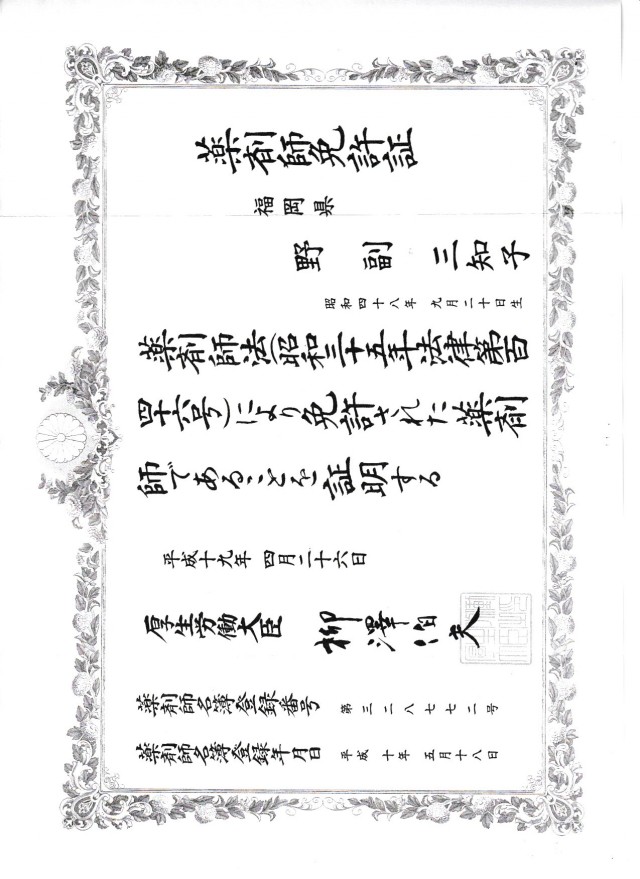 薬剤師免許証
福岡県
野副三知子
昭和四十八年 九月二十日生
薬剤師法(昭和三十五年法律第百
四十六号)により免許された薬剤
師であることを証明する
平成十九年 四月二十六日
厚生労働大臣 柳澤伯夫
薬剤師名簿登録番号 第三二八七七二号
薬剤師名簿登録年月日 平成 十年 五月十八日